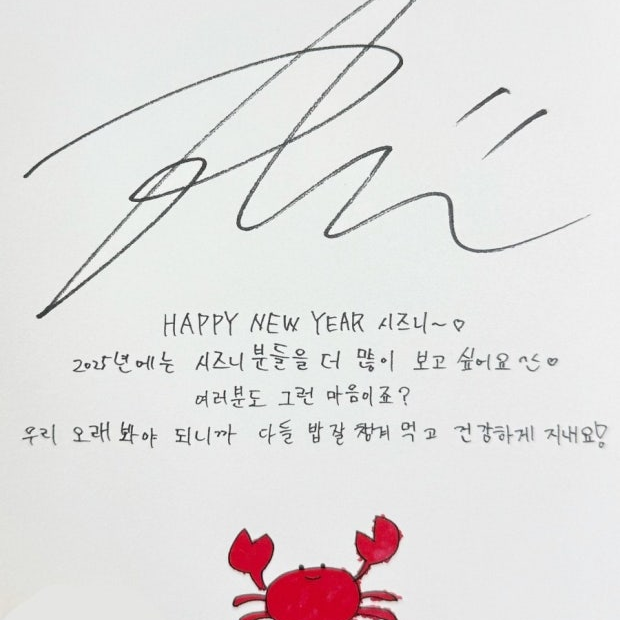 HAPPY NEW YEAR 시즈니~♡
2025년에는 시즈니 분들을 더 많이 보고 싶어요 ^^♡
여러분도 그런 마음이죠?
우리 오래 봐야 되니까 다들 밥 잘 챙겨 먹고 건강하게 지내요!